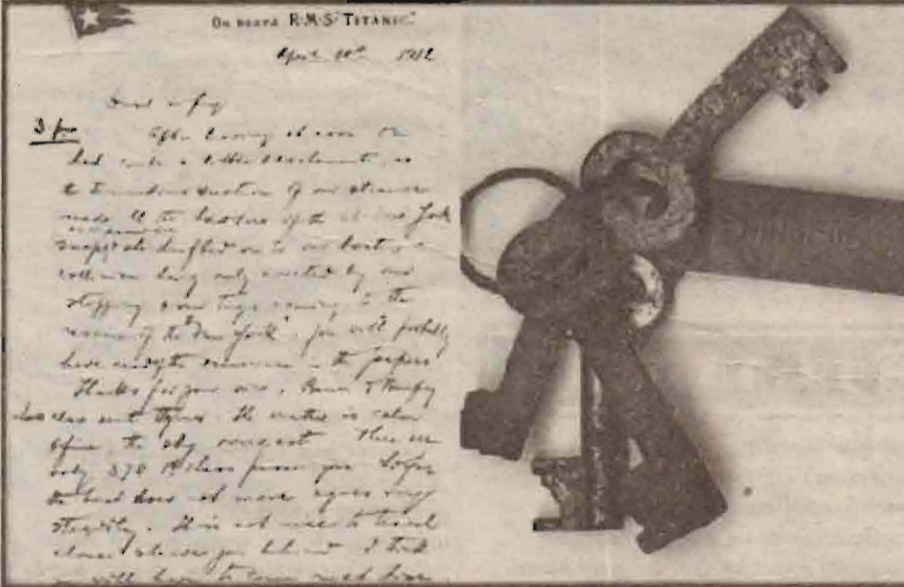 On board R.M.S. "Titanic."
April 10th 1912
3 pm
After having at noon
had quite a little excitement, as
the tremendous suction of our steamer
made all the hawsers of the New York
snap & she drifted on to our boat, a
collision being only averted by our
stopping & our tugs coming to the
rescue of the "New York", you will probably
have the in the papers
Thanks for your wire,
also sent The weather is calm
& fine, the sky overcast. There are
only 370 1st class passengers. So far
the boat does not move & goes very
steadily. It is not nice to travel
alone & leave you behind. I think
you will have to come next time